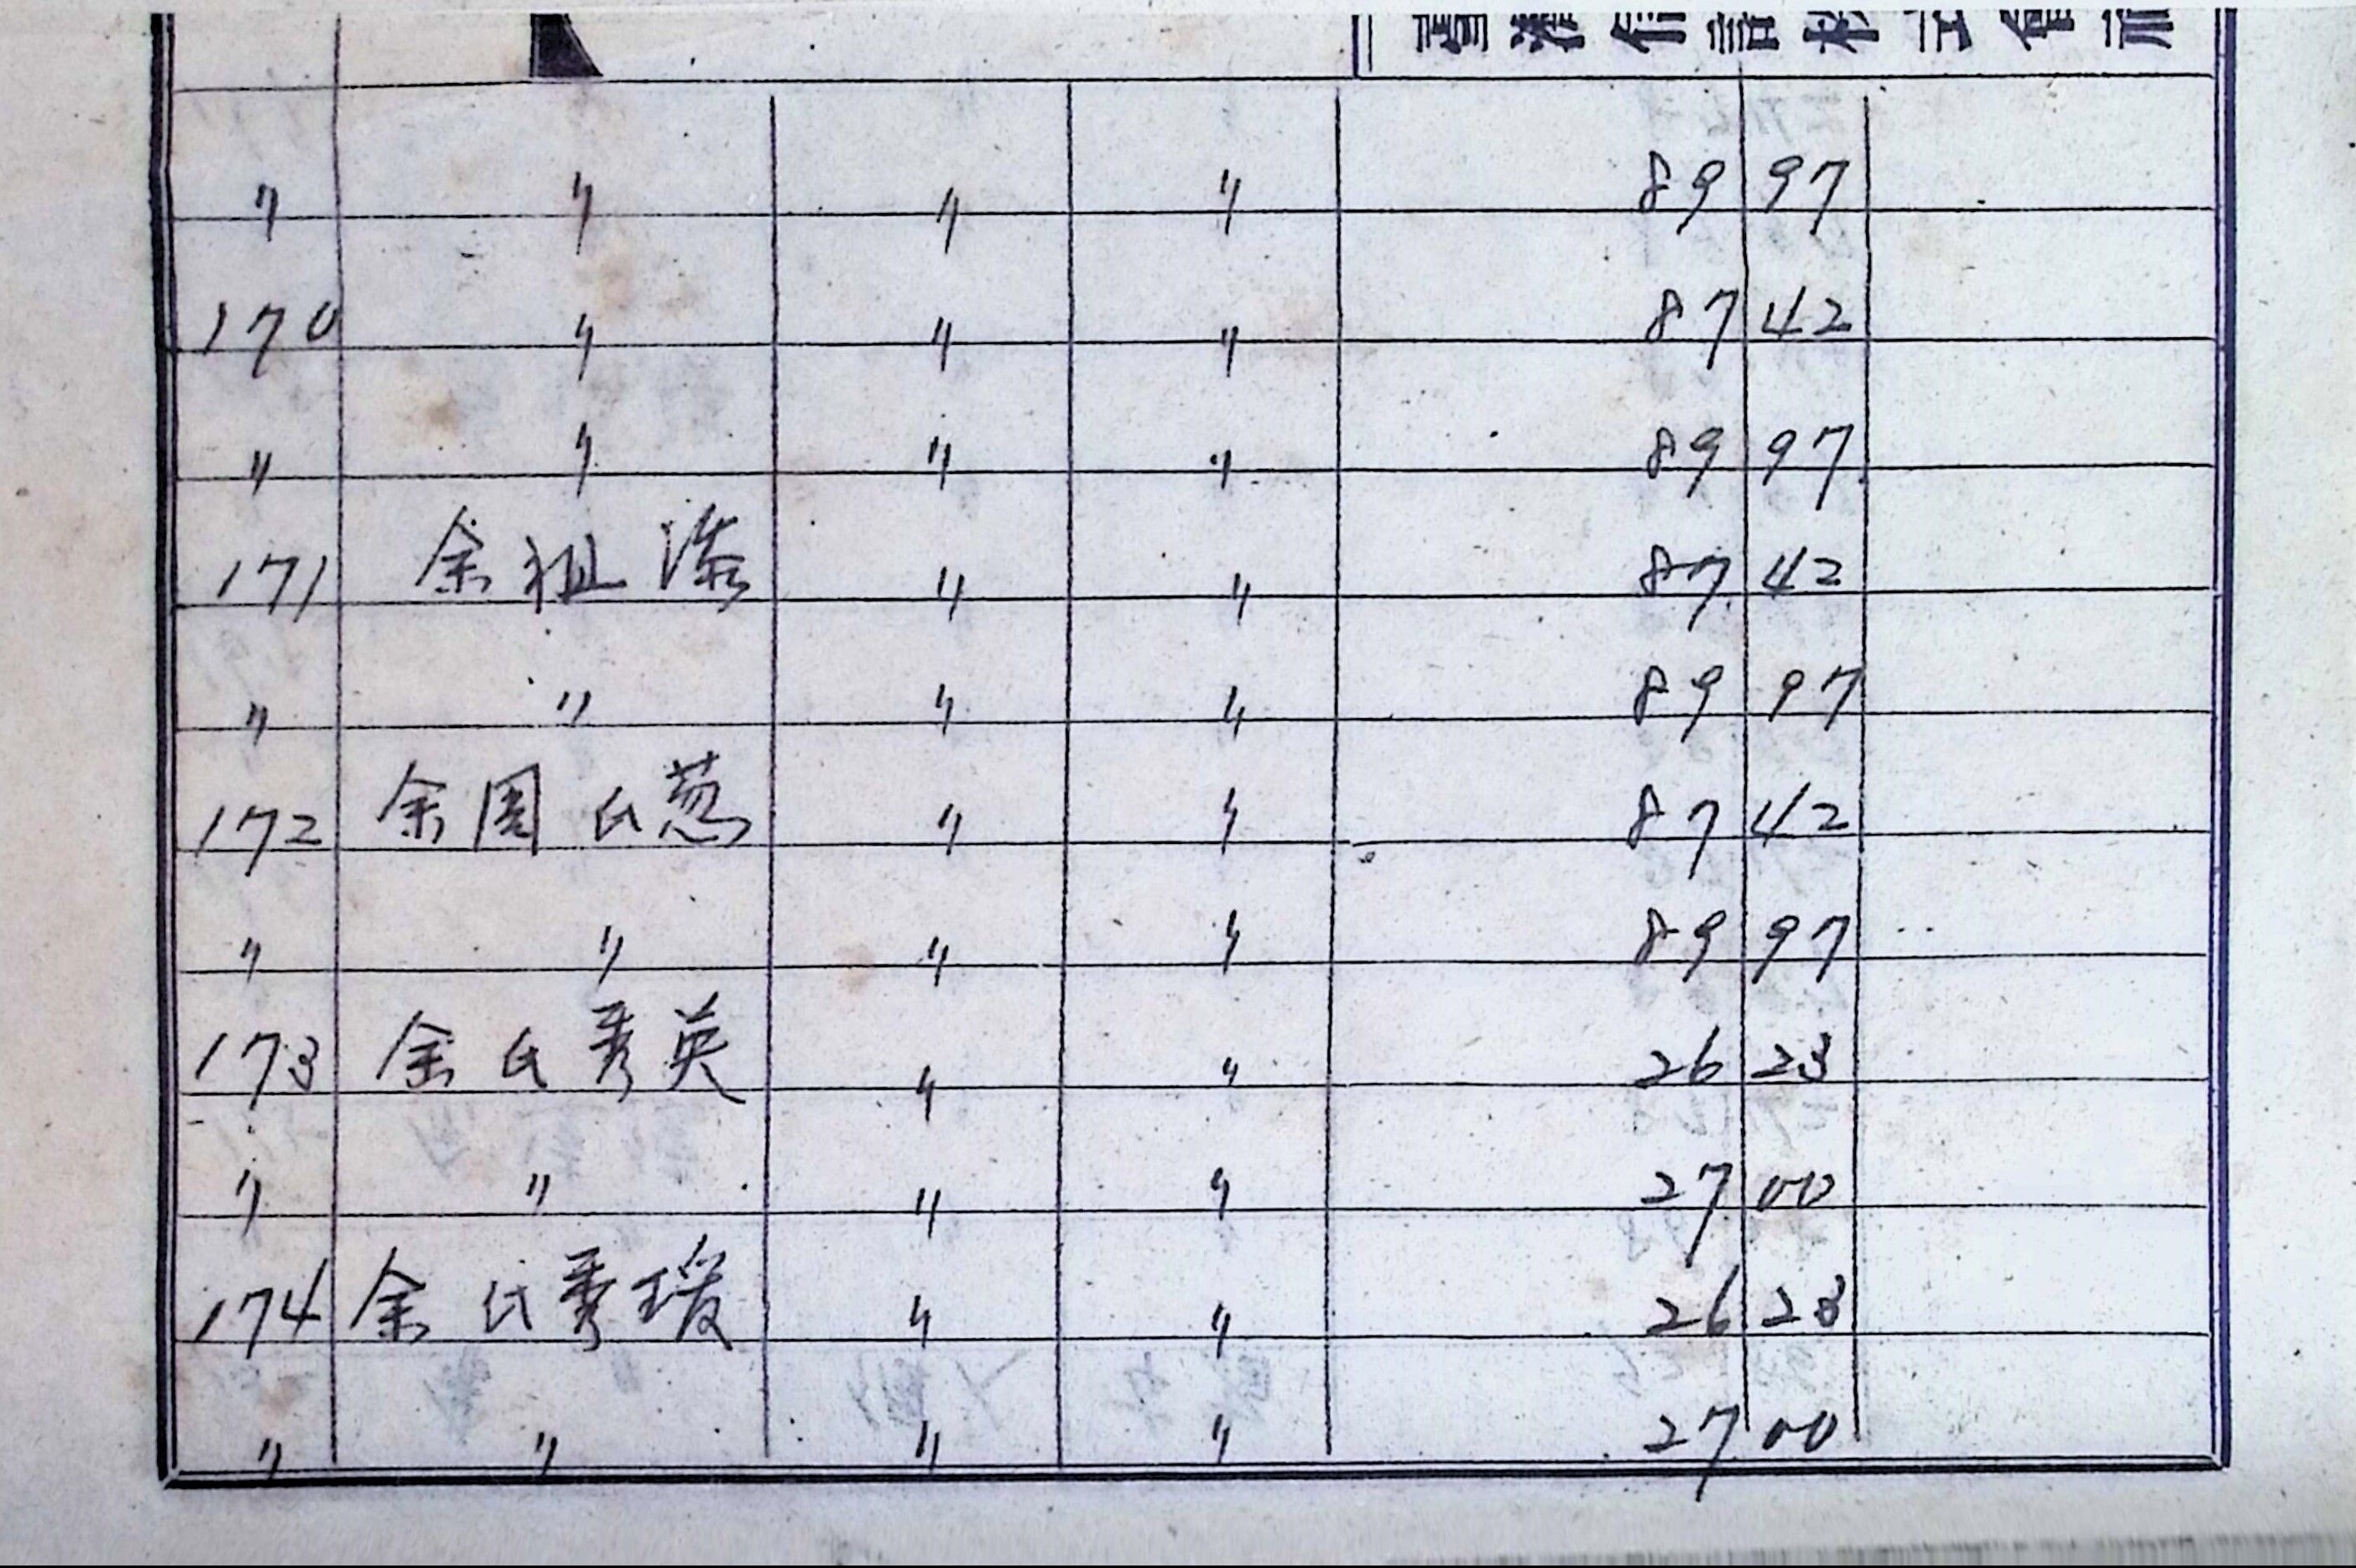 〃 〃 〃 〃 89 97
170 〃 〃 〃 87 42
〃 〃 〃 〃 89 97
171 余祖 〃 〃 87 42
〃 〃 〃 〃 89 97
172 余周氏葱 〃 〃 87 42
〃 〃 〃 〃 89 97
173 余氏秀英 〃 〃 26 23
〃 〃 〃 〃 27 00
174 余氏秀瑷 〃 〃 26 23
〃 〃 〃 〃 27 00